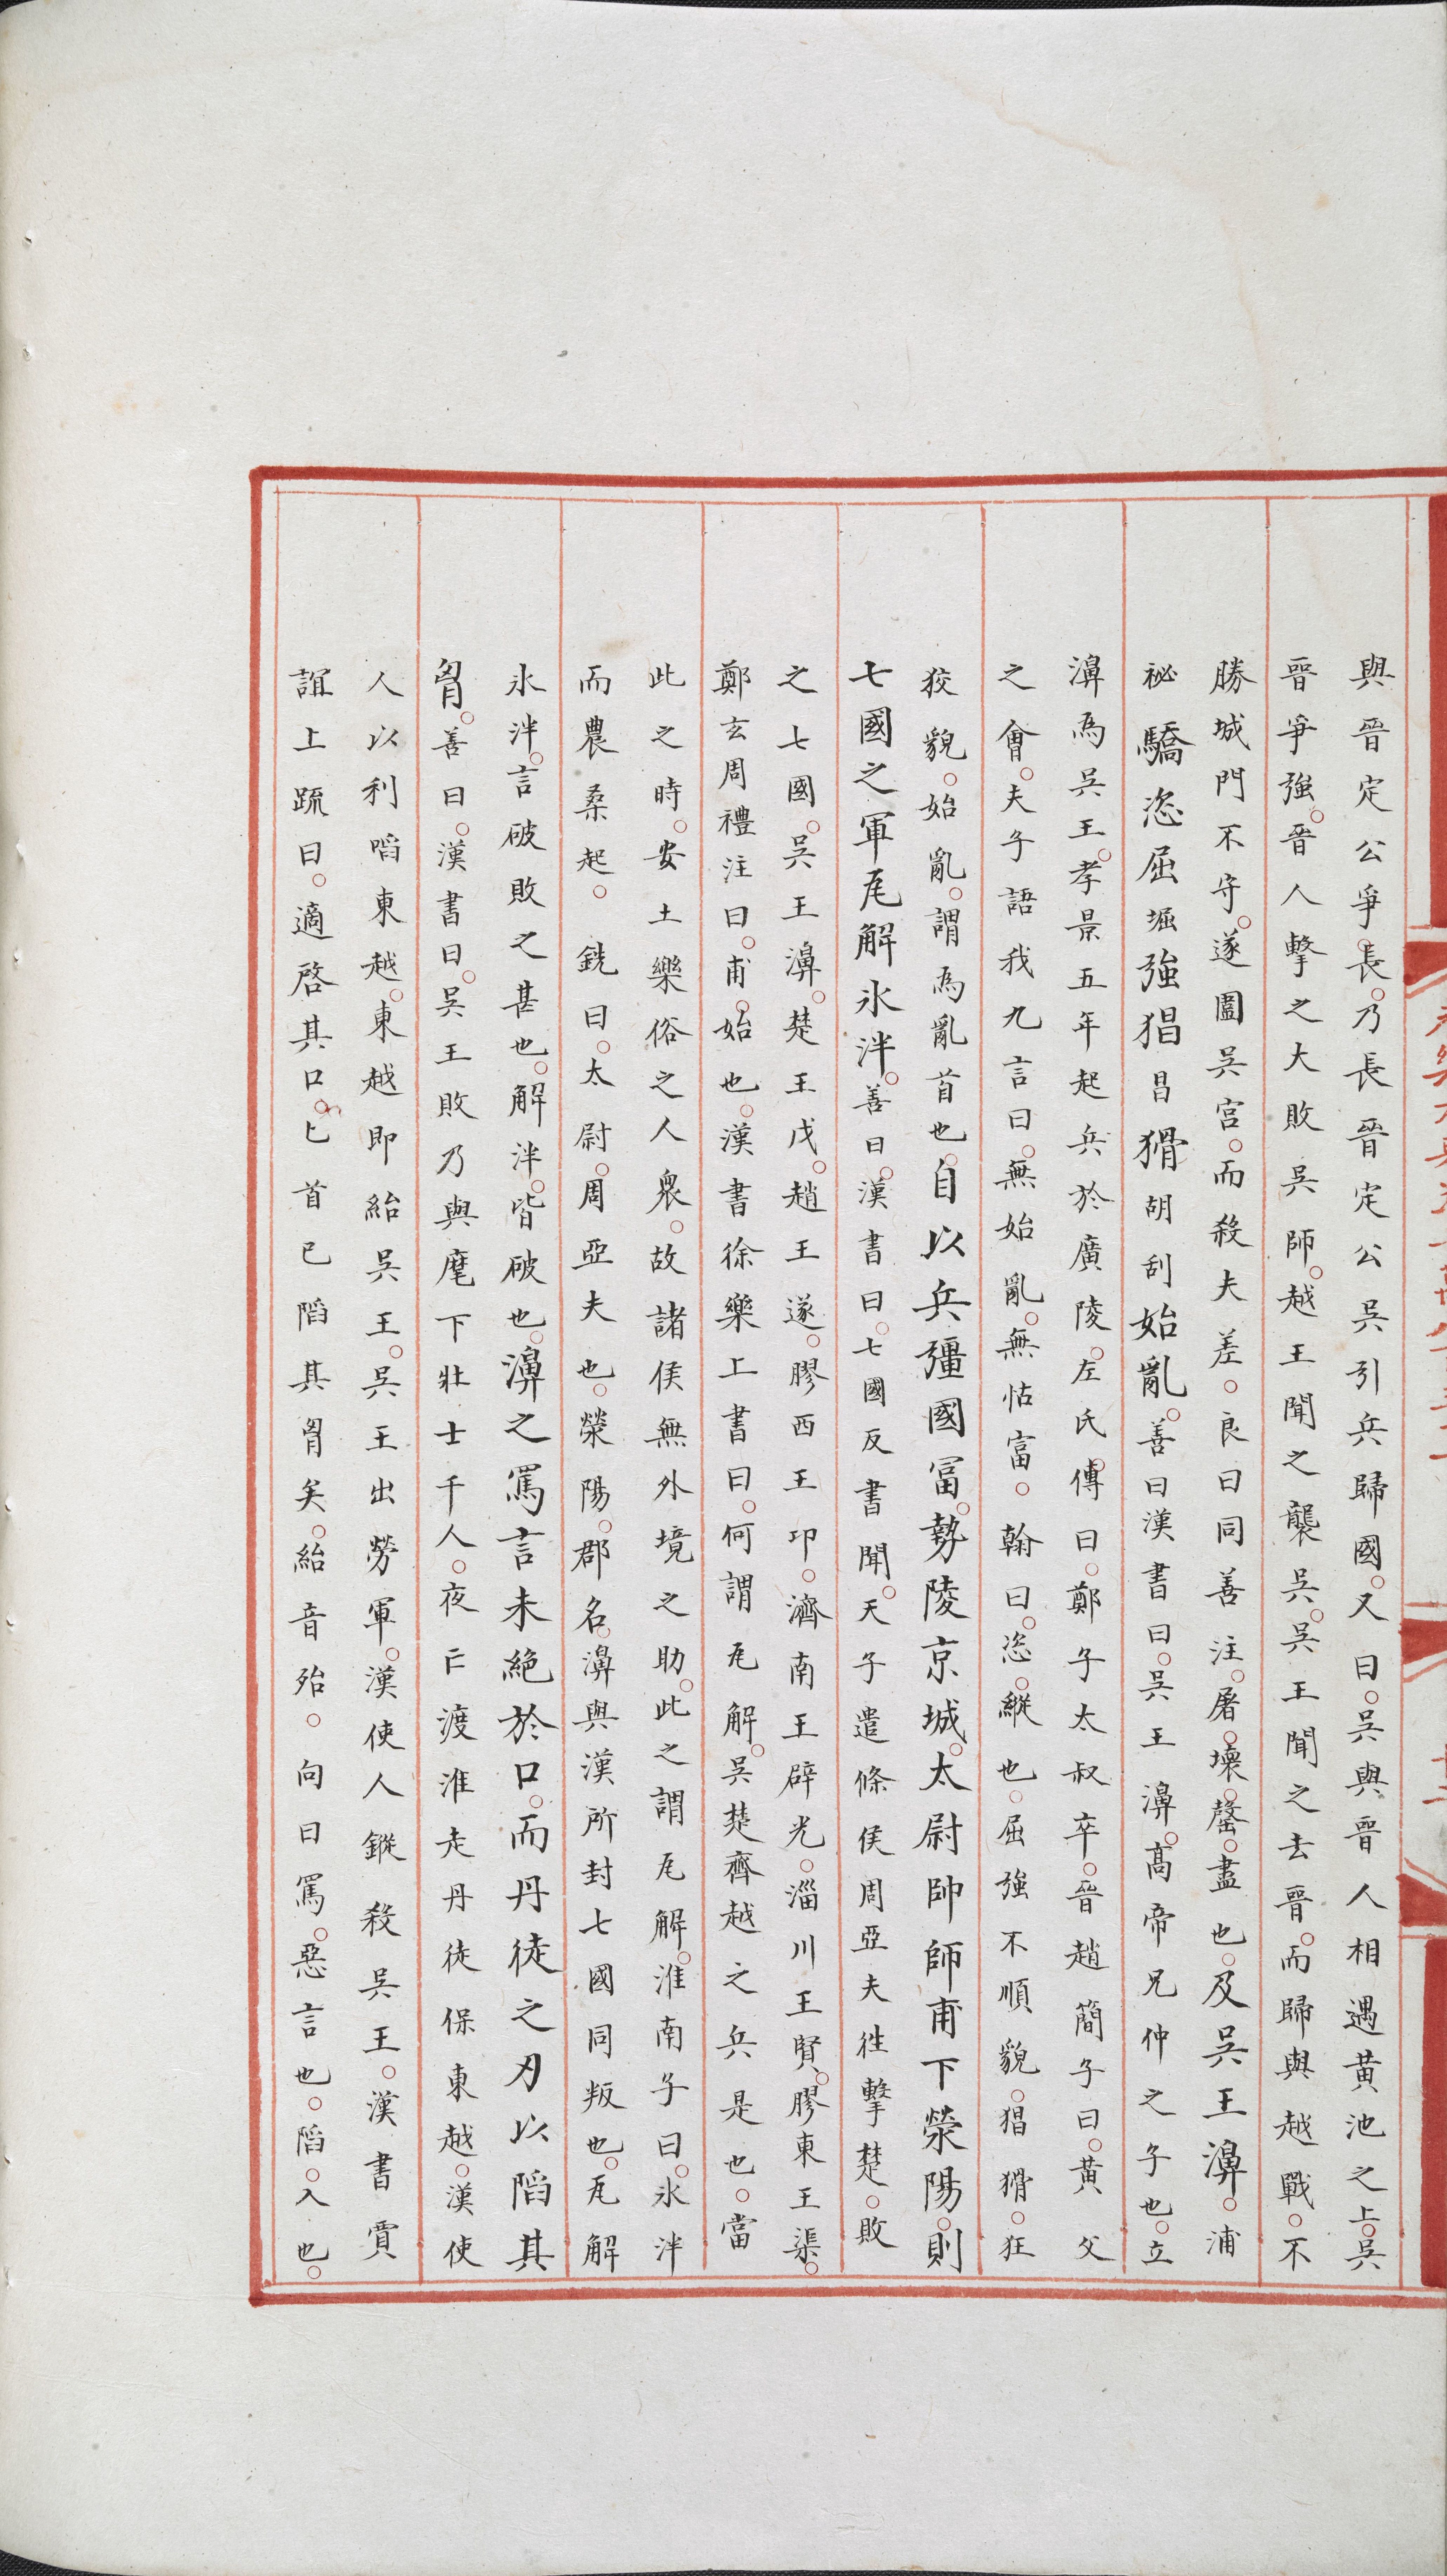 與晉定公爭長乃長晉定公吳引兵歸國又曰吳與晉人相遇黃池之上吳
晉爭強晉人擊之大敗吳師越王聞之襲吳吳王聞之去晉而歸與越戰不
勝城門不守遂圍吳宮而殺夫差良曰同善注屠壞罄盡也及吳王濞浦
祕驕恣屈堀強猖昌猾胡刮始亂善曰漢書曰吳王濞高帝兄仲之子也立
濞為吳王孝景五年起兵於廣陵左氏傳曰鄭子太叔卒晉趙簡子曰黃父
之會夫子語我九言曰無始亂無怙富翰曰恣縱也屈強不順貌猖猾狂
狡貌始亂謂為亂首也自以兵彊國富勢陵京城太尉帥師甫下滎陽則
七國之軍瓦解氷泮善曰漢書曰七國反書聞天子遣條侯周亞夫徃擊楚敗
之七國吳王濞楚王戊趙王遂膠西王卬濟南王辟光淄川王賢膠東王渠
鄭玄周禮注曰甫始也漢書徐樂上書曰何謂瓦解吳楚齊越之兵是也當
此之時安土樂俗之人衆故諸侯無外境之助此之謂瓦解淮南子曰氷泮
而農桑起銑曰太尉周亞夫也滎陽郡名濞與漢所封七國同叛也瓦解
氷泮言破敗之甚也解泮皆破也濞之罵言未絕於口而丹徒之刃以䧟其
胷善曰漢書曰吳王敗乃與麾下壯士千人夜亡渡淮走丹徒保東越漢使
人以利啗東越東越即紿吳王吳王出勞軍漢使人鏦殺吳王漢書賈
誼上疏曰適啓其口匕首已䧟其胷矣紿音殆向曰罵惡言也䧟入也